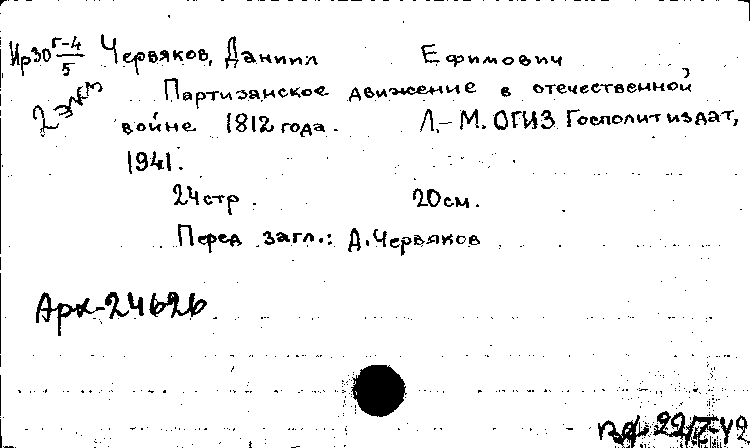 Ир30 Г-4/5 Червяков, Даниил Ефимович
2 экз
Партизанское движение в отечественной
войне 1812 года. Л.-М. ОГИЗ Госполитиздат,
1941.
24 стр. 20 см.
Перед загл.: Д. Червяков
Арх-24626